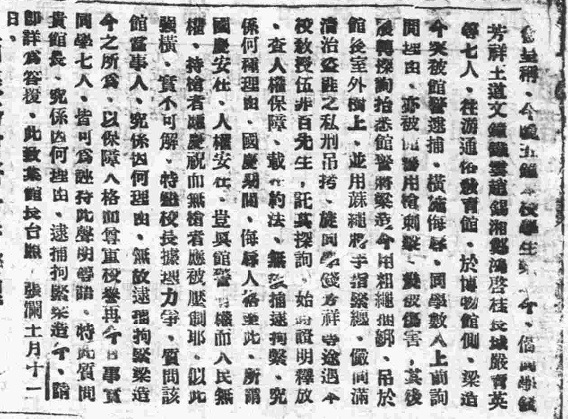 呈稱、今晚五鐘本校學生梁 今、偕同學錢
芳祥王道文鐘繼雲趙錫湘鄭鴻啓桂長城嚴育英
等七人、往游通俗教育館、於博物館側、梁造
今突被館警逮捕、橫施侮辱、同學數人上前詢
問理由、亦被 警用槍刺擊、 被傷害、其後
展轉探詢抬悉館警將梁造今用粗繩捆綁、吊於
館後室外樹上、並用麻繩將手指緊纏、儼同滿
清治盜匪之私刑吊拷、旋同學錢芳祥等途遇本
校教授伍非百先生、託其探詢、始 證明釋放
、查人權保障、載在約法、無故捕逮拘繫、究
係何種理由、國慶期間、侮辱人格至此、所謂
國慶安在、人權安在、豈與館警有權而人民無
權、持槍者應慶祝而無槍者應被壓制耶、似此
強橫、實不可解、特懇校長據理力爭、質問該
館當事人、究係因何理由、無故逮捕拘繫梁造
今之所為、以保障人格而尊重校譽再今日事實
同學七人、皆可為證持此聲明等語、特此質問
貴館長、究係因何理由、逮捕拘繫梁造今、請
即詳為答復、此致某館長台照 張瀾十月十一
日、